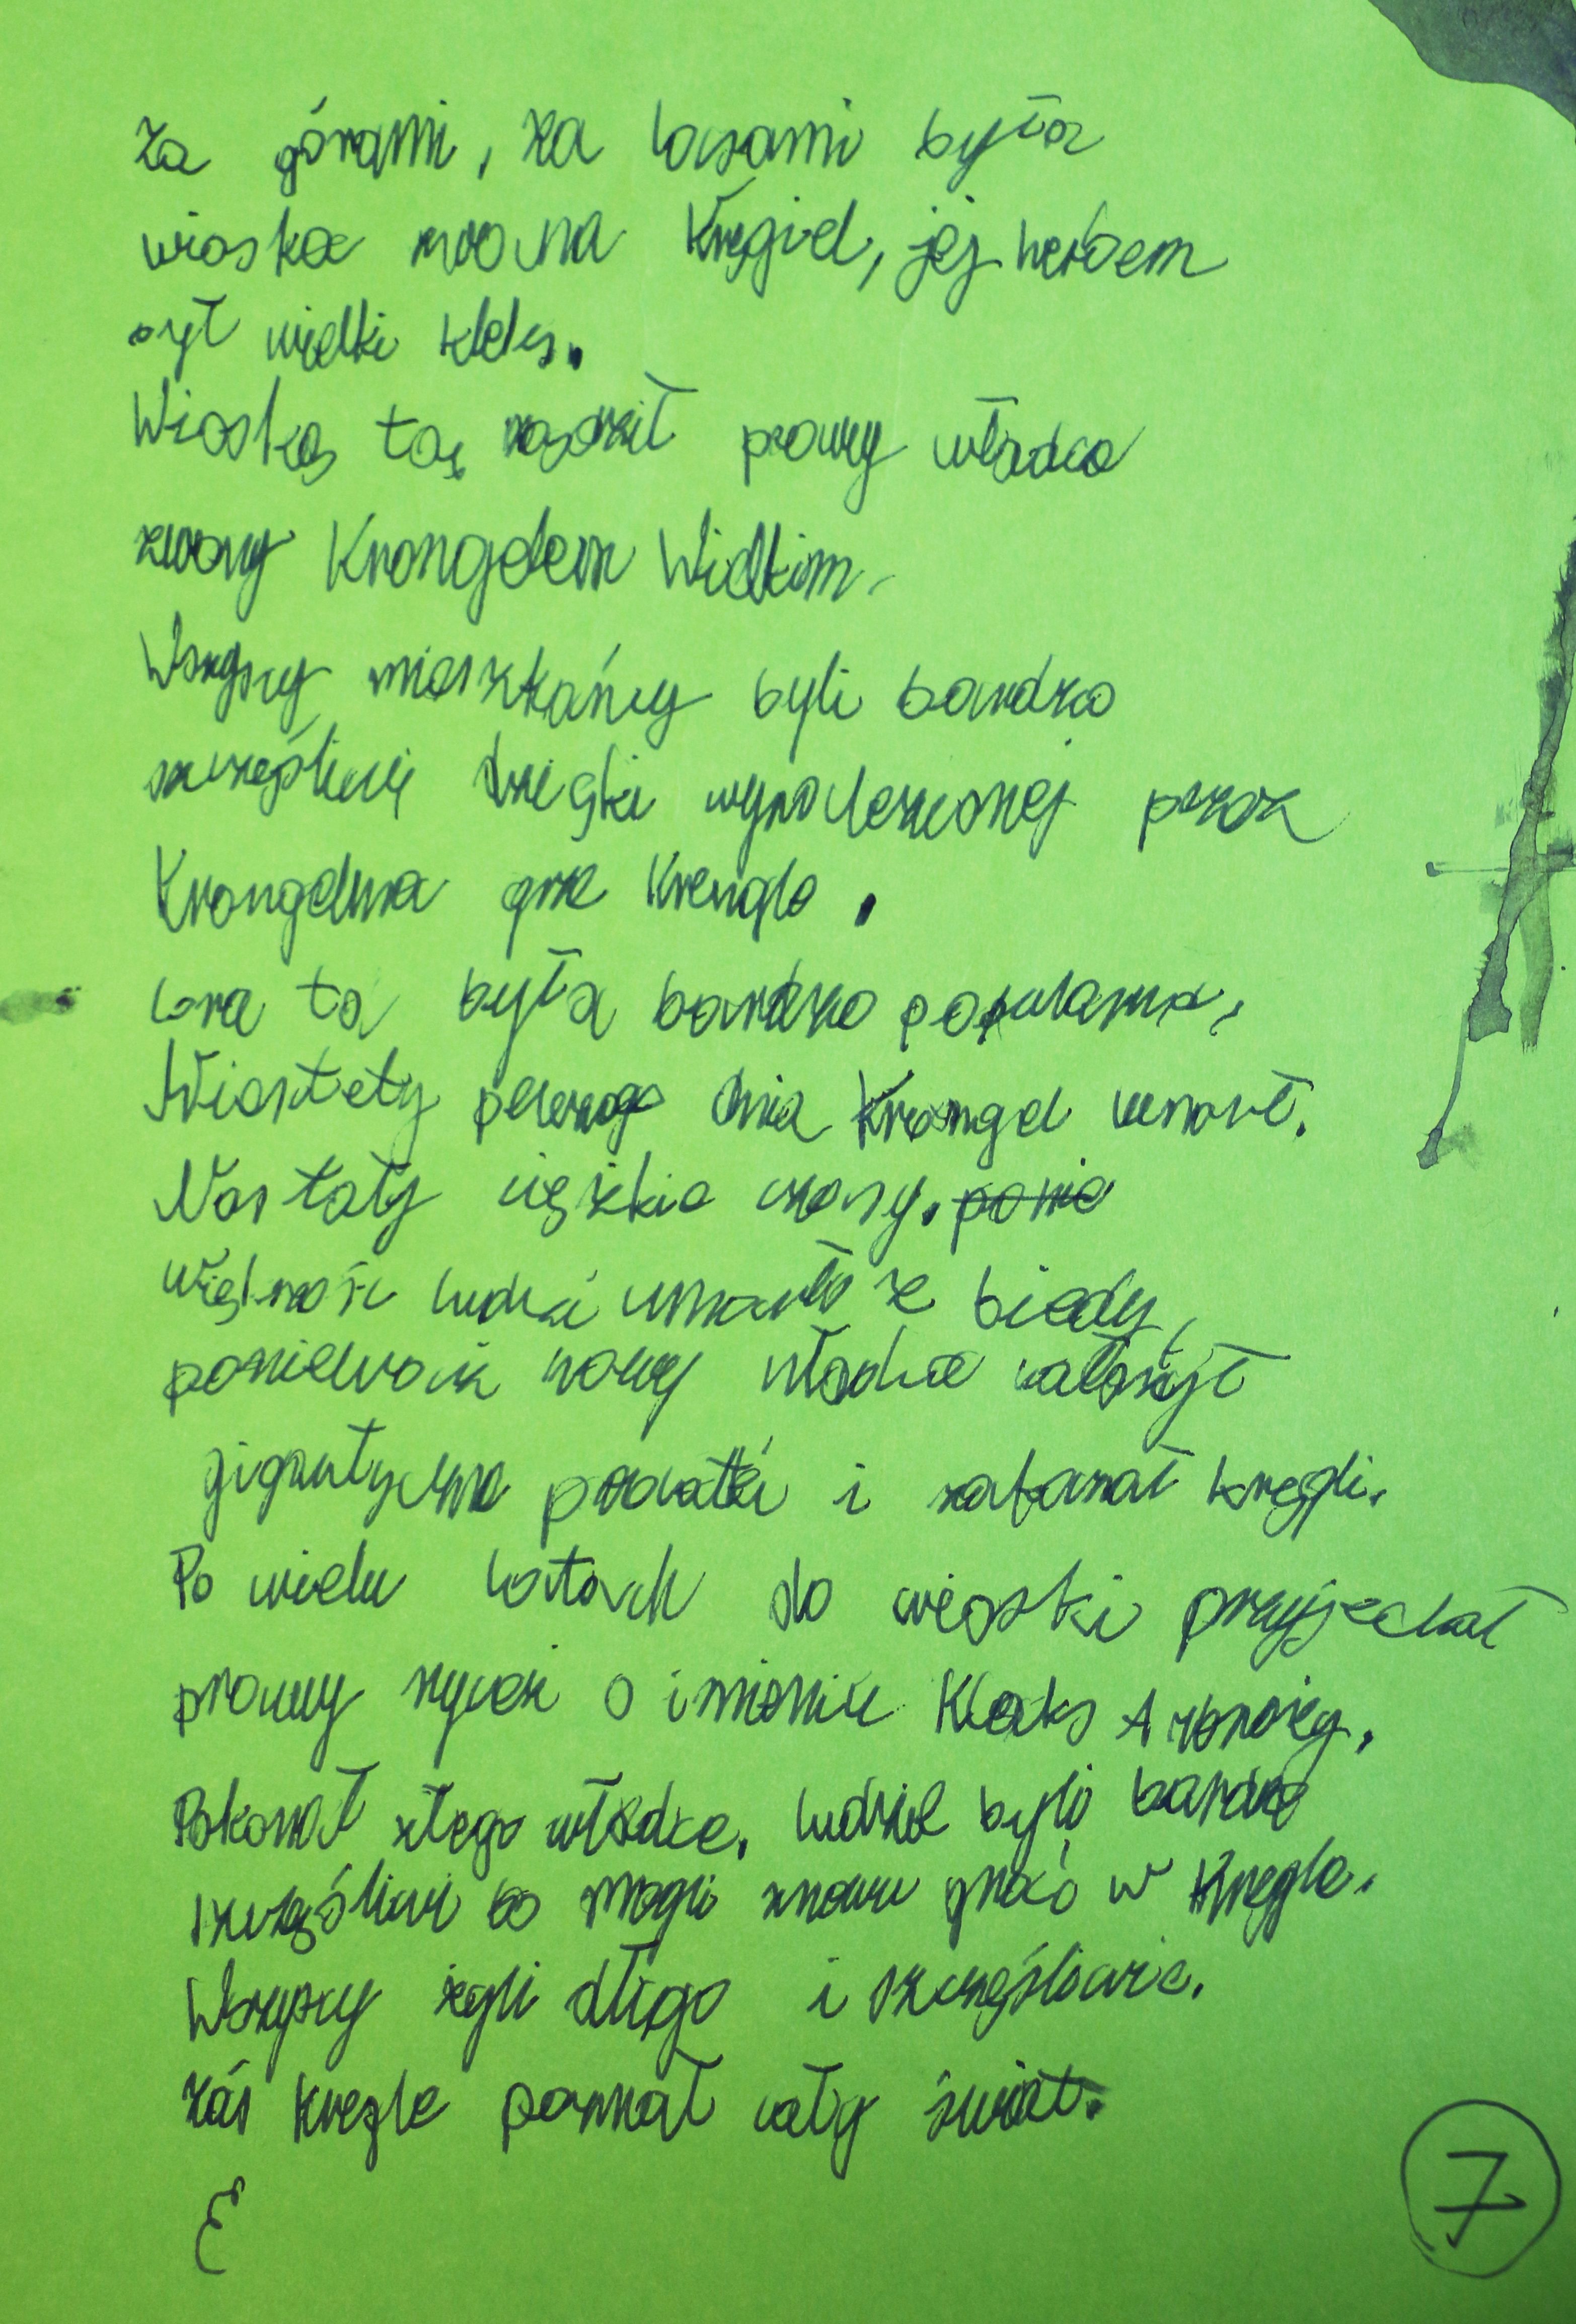 Za górami, za lasami była
wioska zwana Kręgiel, jej herbem
był wielki kleks.
Wioską tą rządził prawy władca
zwany Krangelem Wielkim.
Wszyscy mieszkańcy byli bardzo
szczęśliwi dzięki wynalezionej przez
Krangelma grze Krengle.
Gra ta była bardzo popularna.
Niestety pewnego dnia Krangel umarł.
Nastały ciężkie czasy. ponie
Większość ludzi umarło z biedy,
ponieważ nowy władca nałożył
gigantyczne podatki i zakazał kręgli.
Po wielu latach do wioski przyjechał
prawy rycerz o imieniu Kleks
Pokonał złego władce. ludzie byli bardzo
szczęśliwi bo mogli znowu grać w Kręgle.
Wszyscy żyli długo i szczęśliwie.
Zaś kręgle poznał cały świat.
7